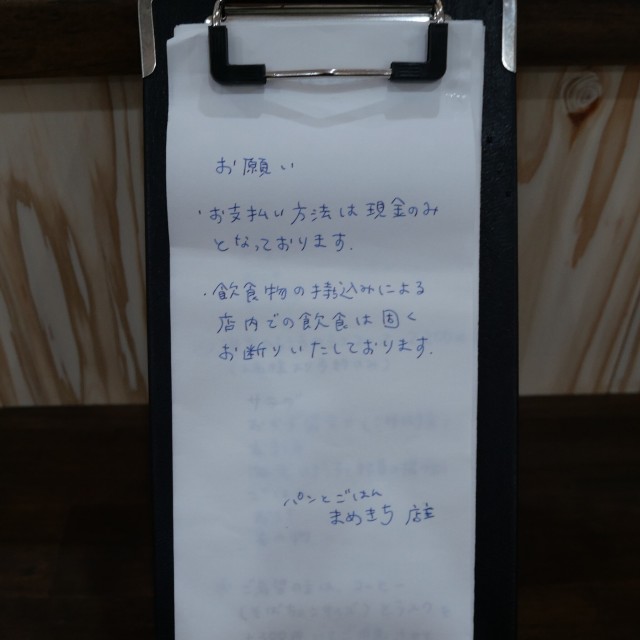 お願い
・お支払い方法は現金のみ
となっております.
・飲食物の持込みによる
店内での飲食は固く
お断りいたしております.
パンとごはん
まめきち 店主